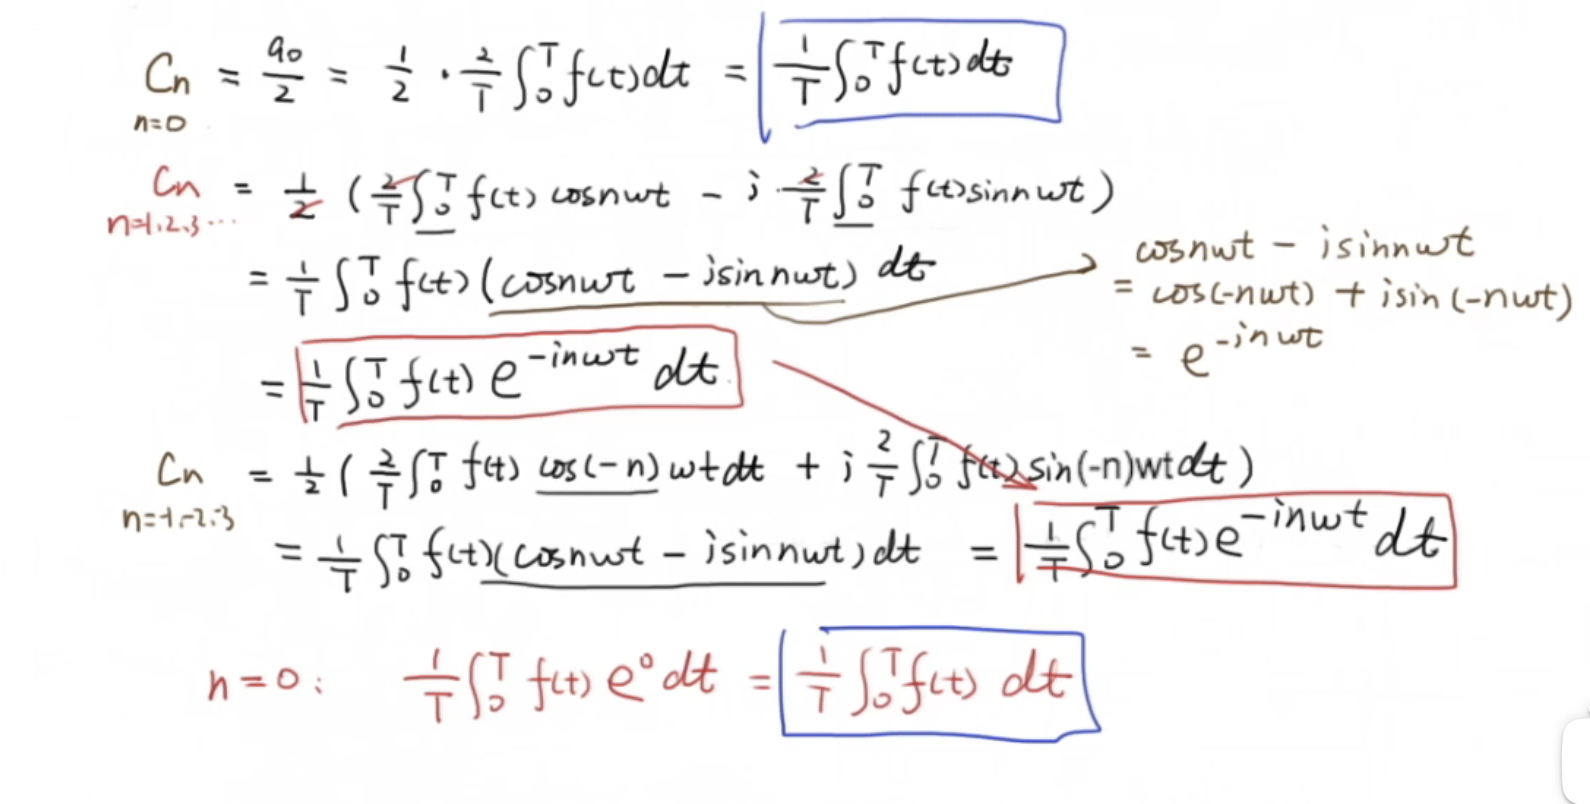 Cn = a0/2 = 1/2 · 2/T ∫₀ᵀ f(t)dt = 1/T ∫₀ᵀ f(t)dt
n=0
Cn = 1/2 ( 2/T ∫₀ᵀ f(t) cosnwt - i · 2/T ∫₀ᵀ f(t)sinnwt )
n=1.2.3...
= 1/T ∫₀ᵀ f(t) (cosnwt - isinnwt) dt
cosnwt - isinnwt
= cos(-nwt) + isin(-nwt)
= e^-inwt
= 1/T ∫₀ᵀ f(t) e^-inwt dt
Cn = 1/2 ( 2/T ∫₀ᵀ f(t) cos(-n) wtdt + i 2/T ∫₀ᵀ f(t) sin(-n)wtdt )
n=-1.-2.-3
= 1/T ∫₀ᵀ f(t)(cosnwt - isinnwt)dt = 1/T ∫₀ᵀ f(t)e^-inwt dt
n=0: 1/T ∫₀ᵀ f(t) e⁰ dt = 1/T ∫₀ᵀ f(t) dt